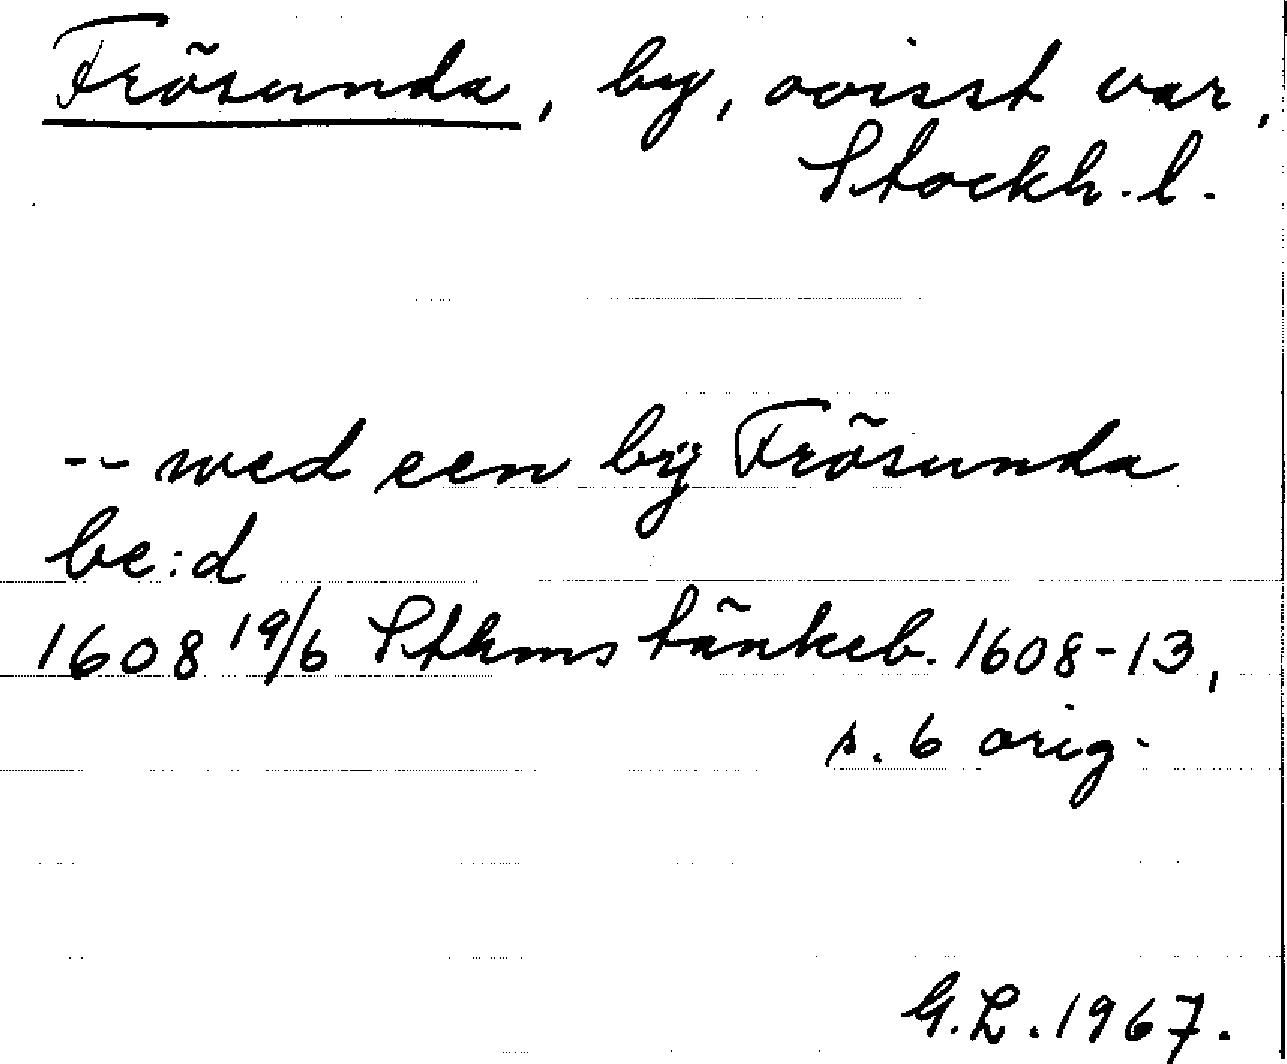 Frösunda, by, ovisst var,
Stockh. l.
-- med een bÿ Frösunda
be:d
1608 19/6 Sthms tänkeb. 1608-13,
s. 6 orig.
G.L. 1967.